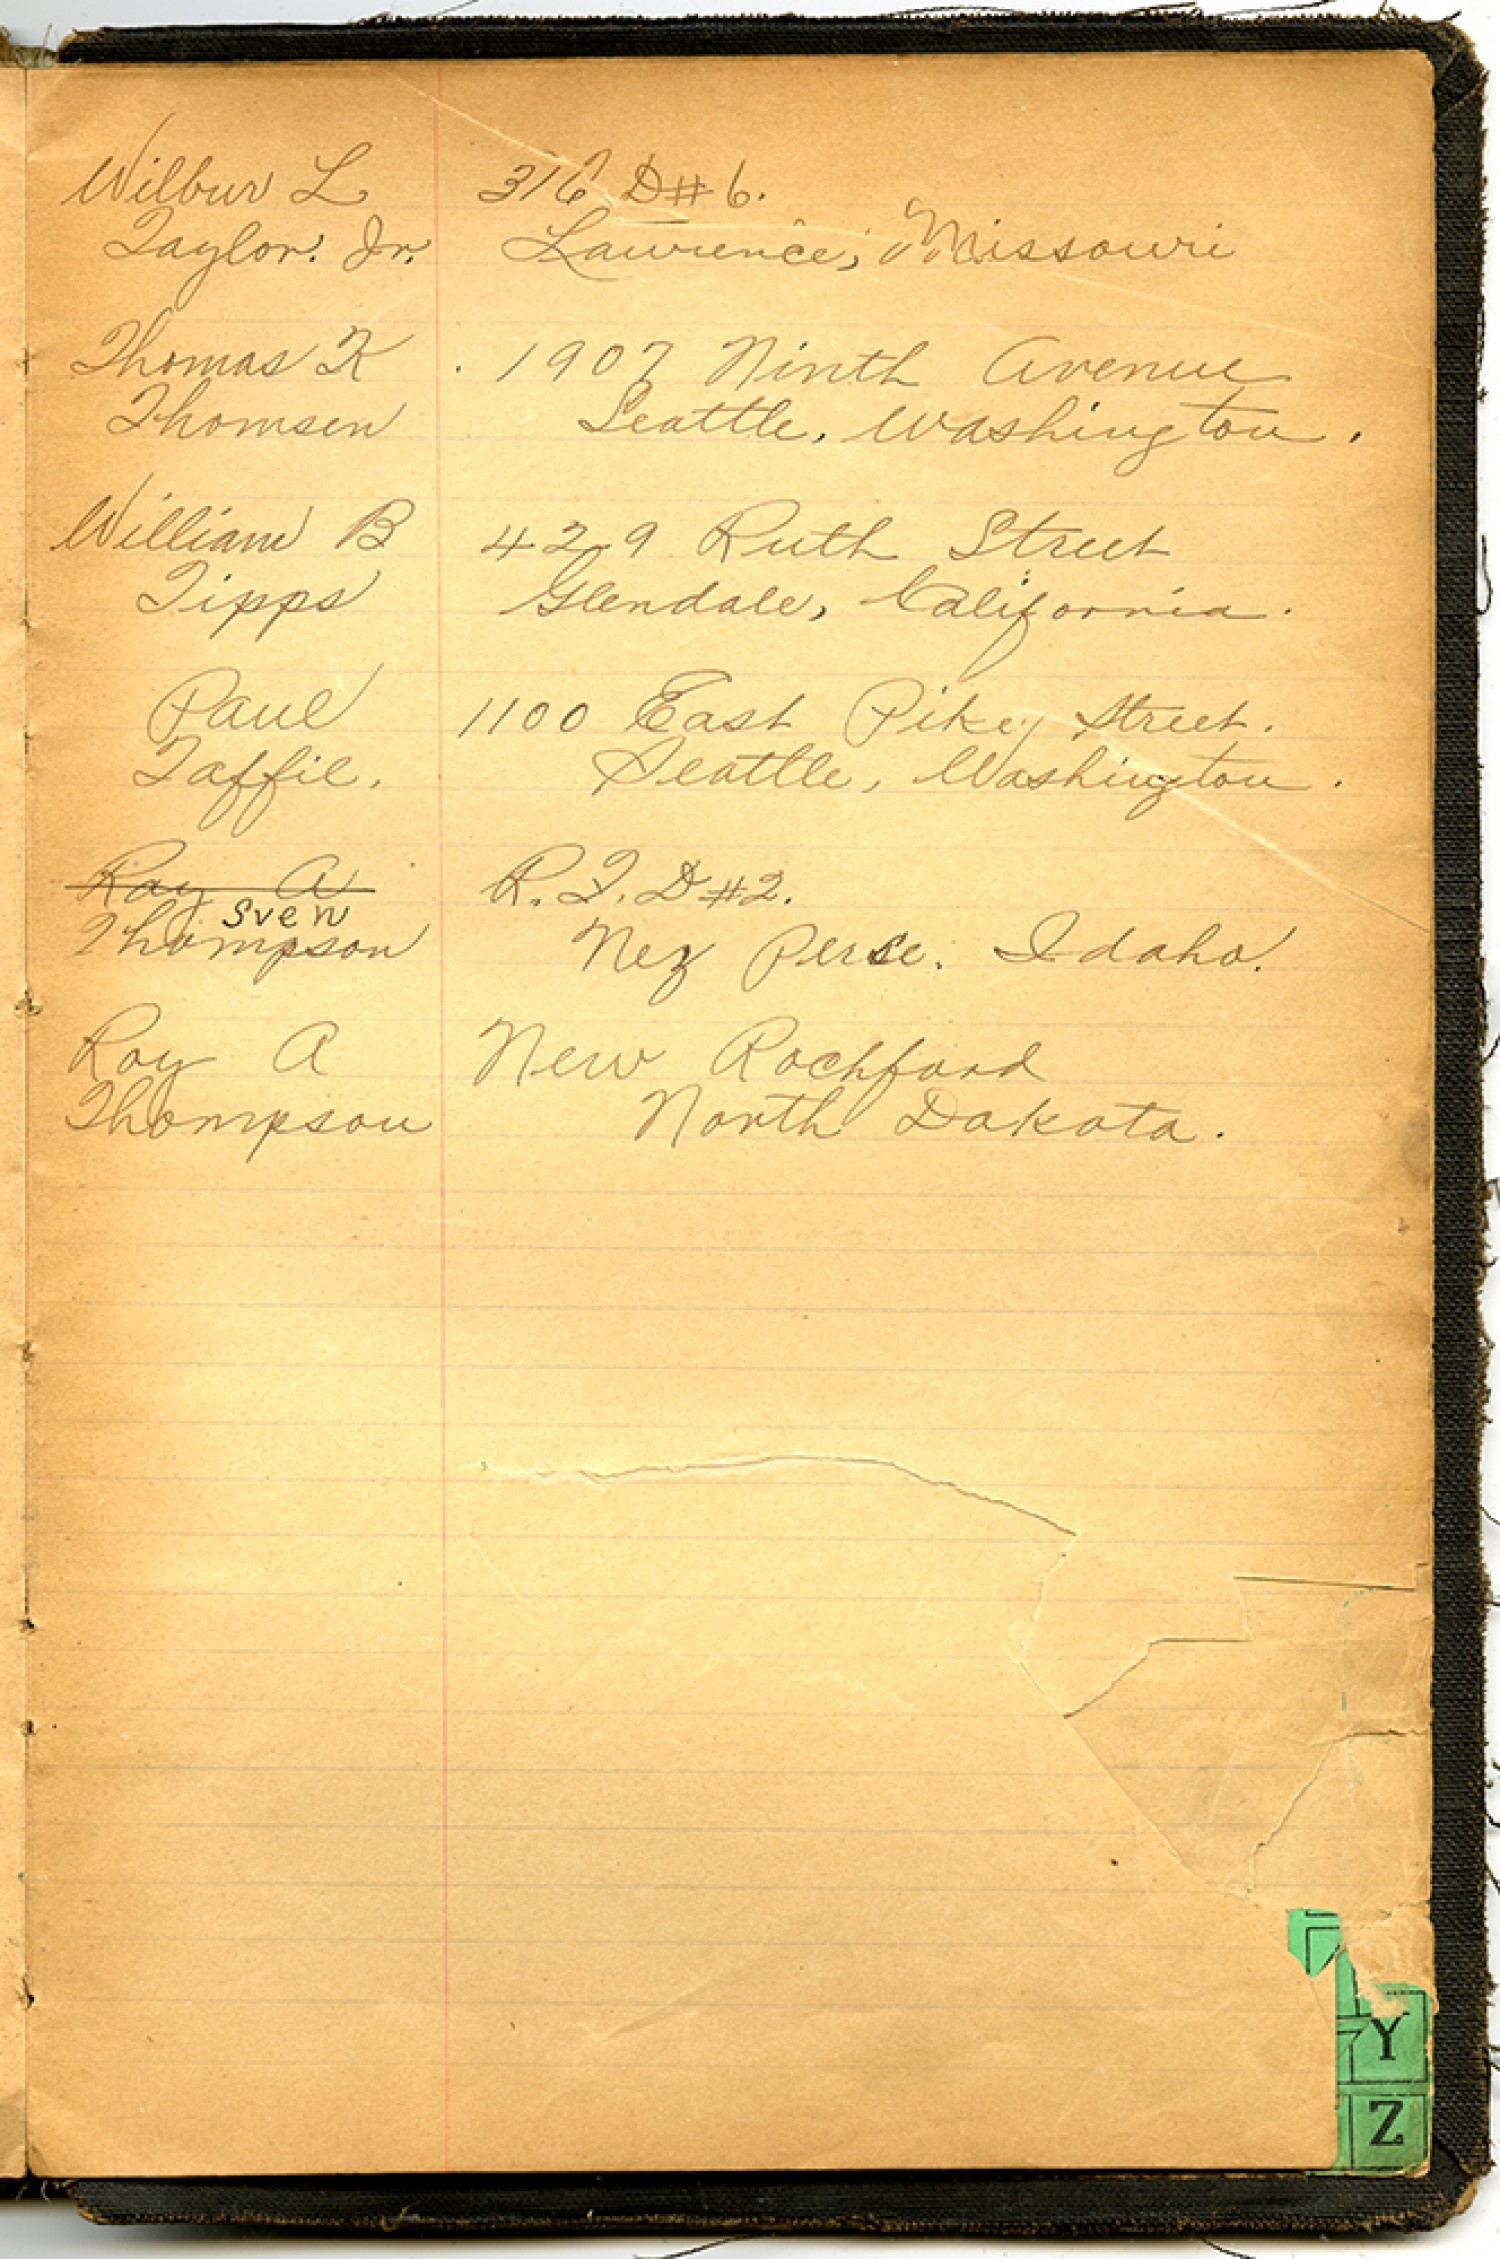 Wilbur L 316 D#6.
Taylor. Jr. Lawrence, Missouri
Thomas K . 1907 Ninth Avenue
Thomsen Seattle, Washington.
William B 429 Ruth Street
Tipps Glendale, California.
Paul 1100 East Pike Street.
Taffie. Seattle, Washington.
Roy A R.F.D#2.
Sven
Thompson Nez Perse. Idaho.
Roy A New Rochford
Thompson North Dakota.
Y
Z